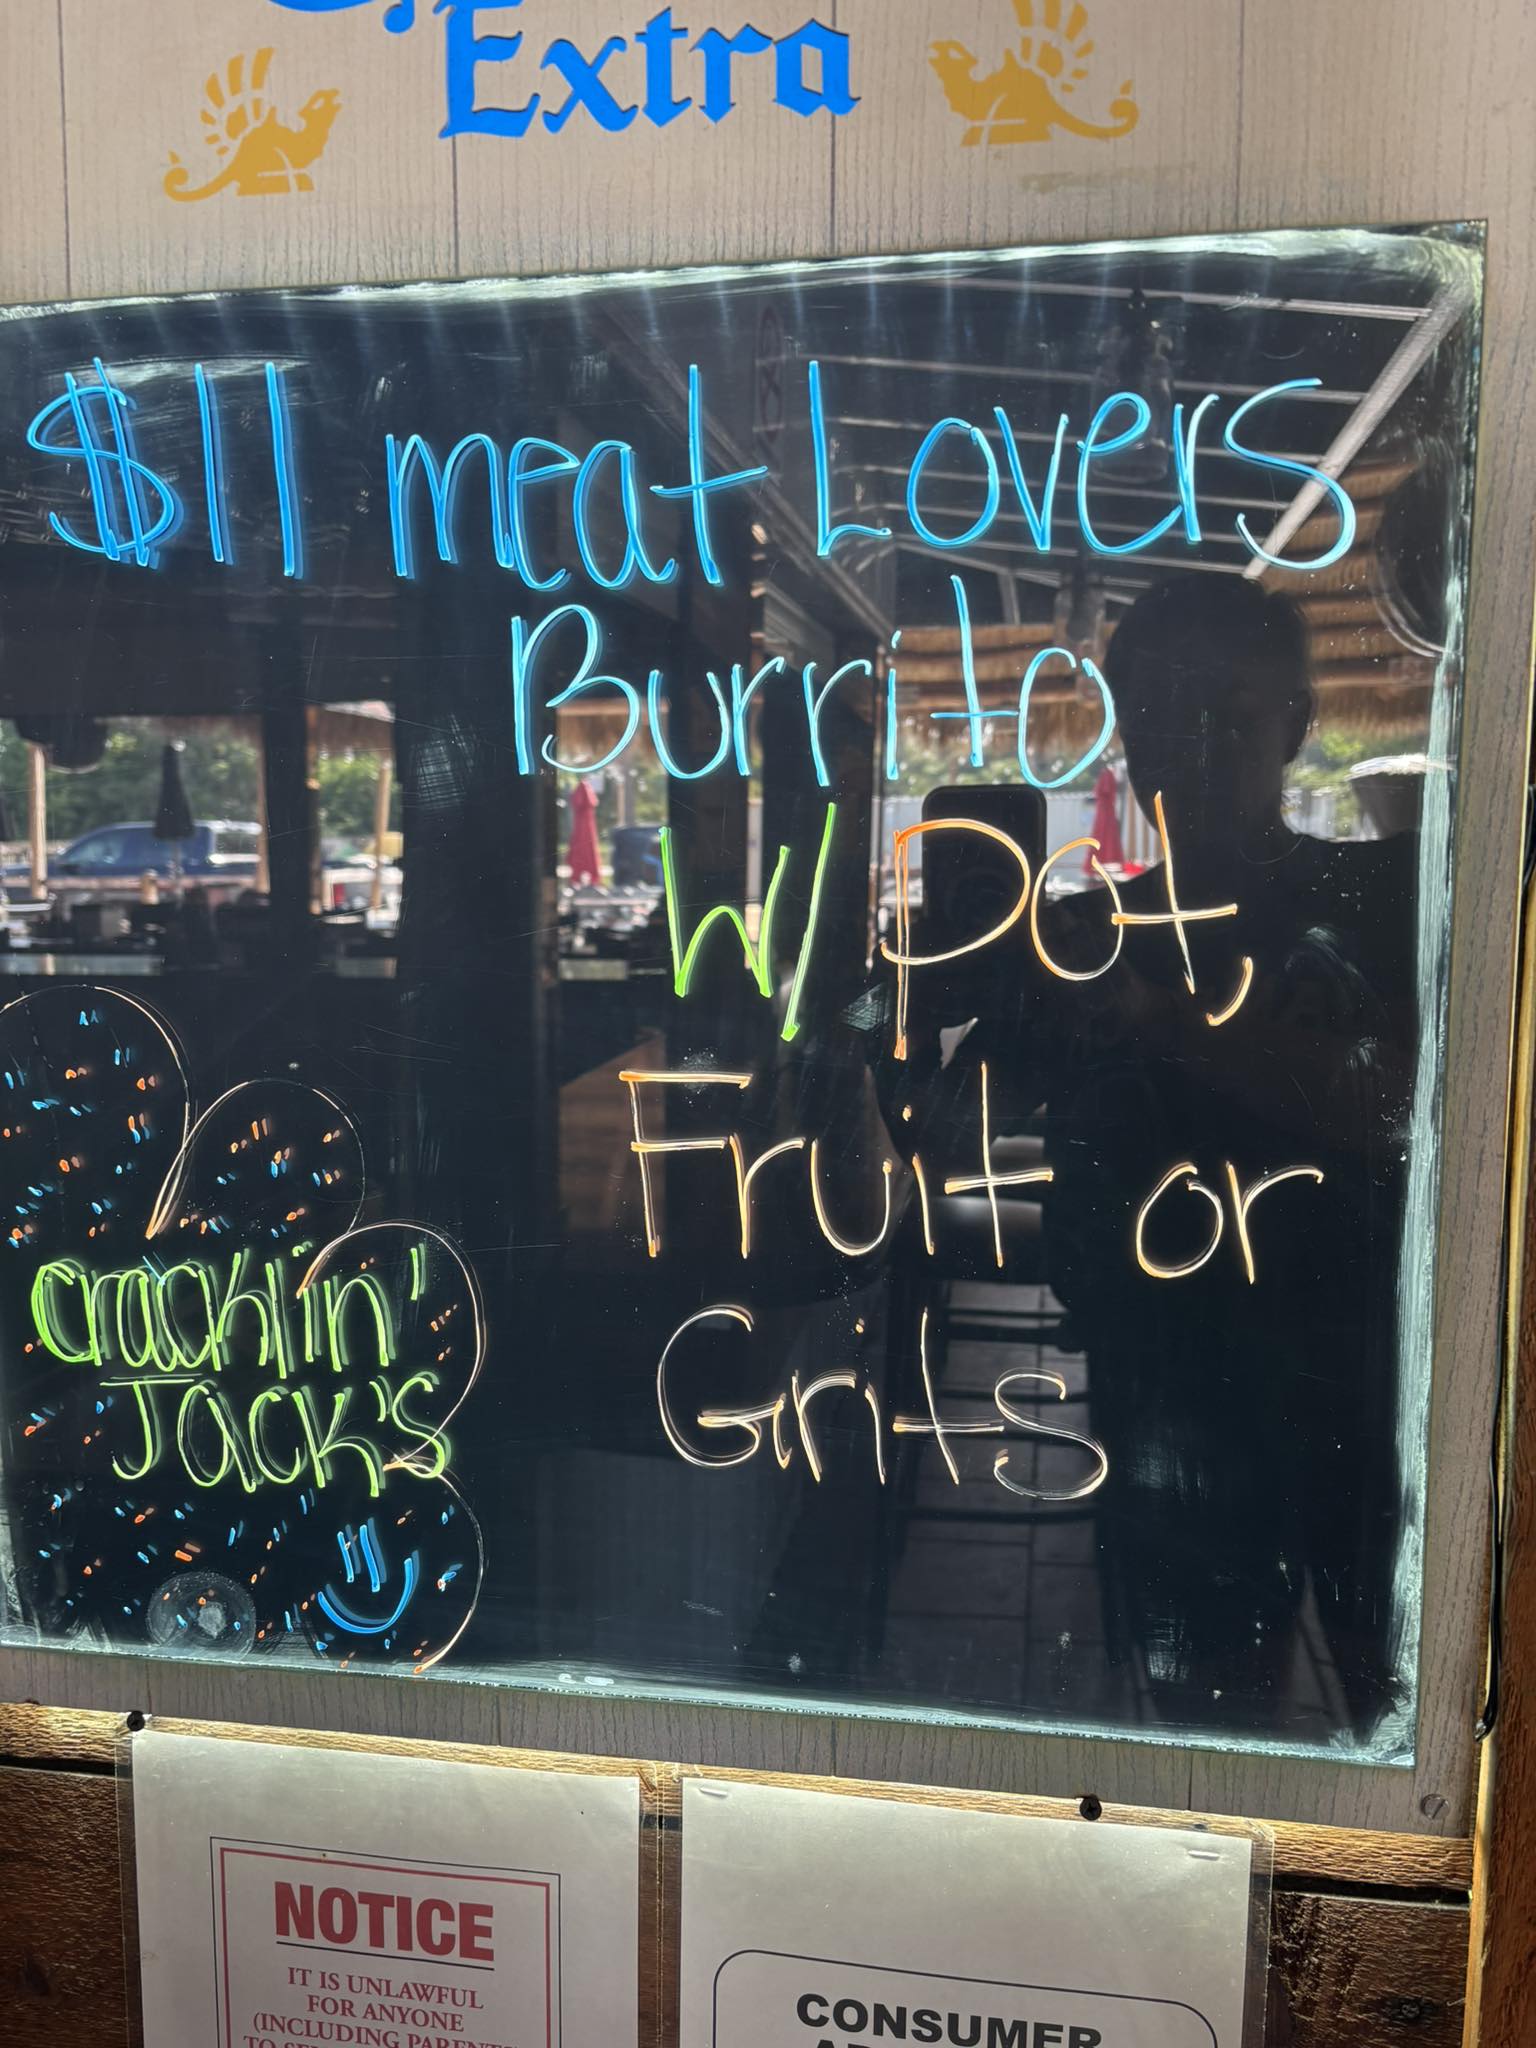 Extra
$11 meat Lovers
Burrito
w/ Pot,
Fruit or
Grits
Cracklin'
Jack's
NOTICE
IT IS UNLAWFUL
FOR ANYONE
(INCLUDING PARENTS
CONSUMER